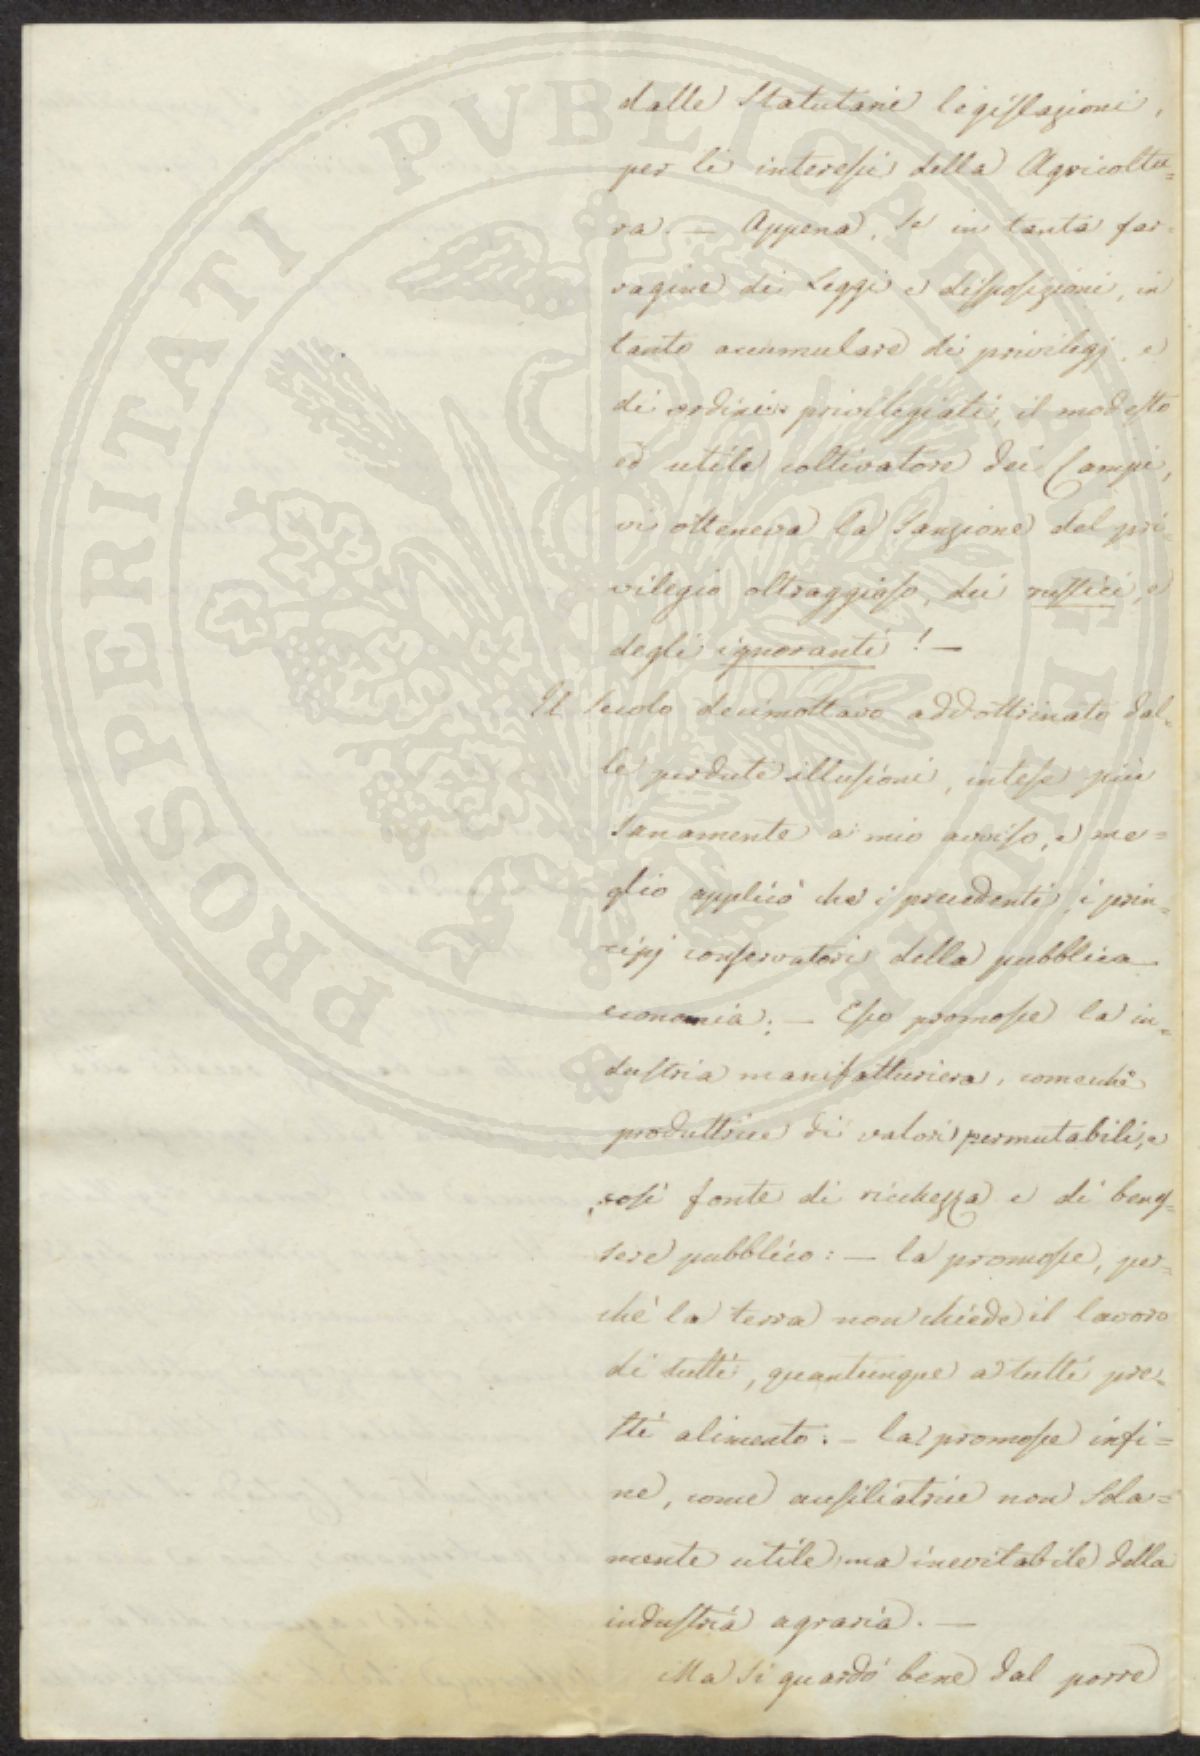 dalle Statutarie legislazioni,
per li interessi della Agricoltu=
ra. — Appena, se in tanta far=
ragine di Leggi e disposizioni, in
tanto accumulare di privilegj, e
di ordini privilegiati, il modesto
ed utile coltivatore dei Campi,
vi otteneva la Sanzione del pri=
vilegio oltraggioso, dei rustici, e
degli ignoranti! —
Il Secolo decimottavo addottrinato dal=
le perdute illusioni, intese più
sanamente a mio avviso, e me=
glio applicò che i precedenti, i prin=
cipj conservatori della pubblica
economia; — Esso promosse la in=
dustria manifatturiera, comecchè
produttrice di valori permutabili, e
così fonte di ricchezza e di benes=
sere pubblico: — la promosse, per=
chè la terra non chiede il lavoro
di tutti, quantunque a tutti pre=
sti alimento: — la promosse infi=
ne, come ausiliatrice non sola=
mente utile, ma inevitabile della
industria agraria. —
Ma si guardò bene dal porre
PROSPERITATI PVBLICAE